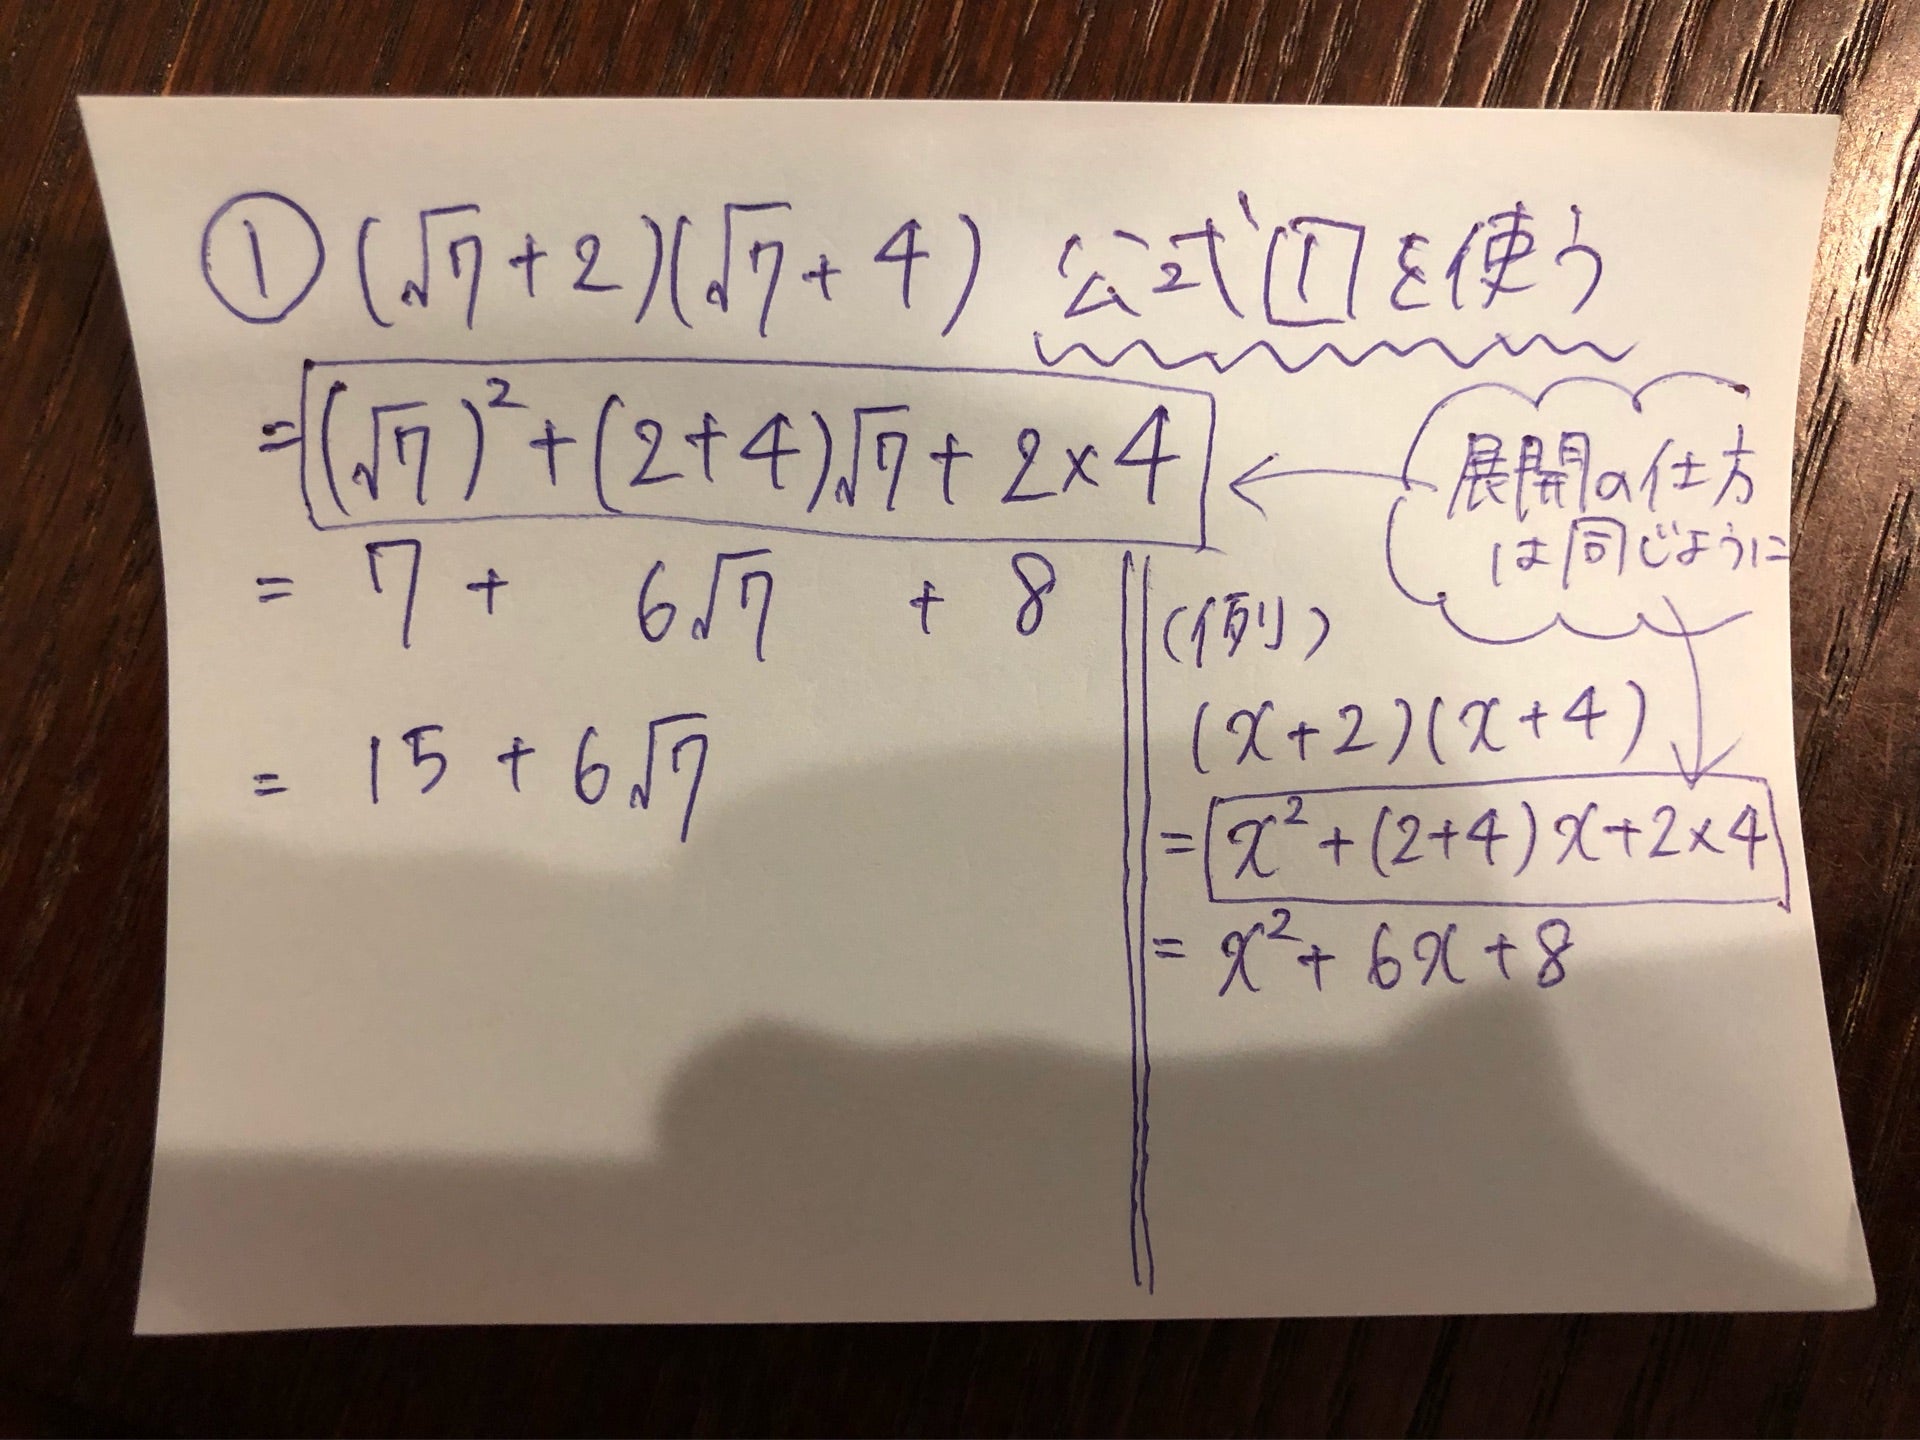 ① (√7+2)(√7+4) 公式1を使う
=(√7)²+(2+4)√7+2×4
= 7 + 6√7 + 8
= 15 + 6√7
展開の仕方
は同じように
(例)
(x+2)(x+4)
= x²+(2+4)x+2×4
= x²+6x+8